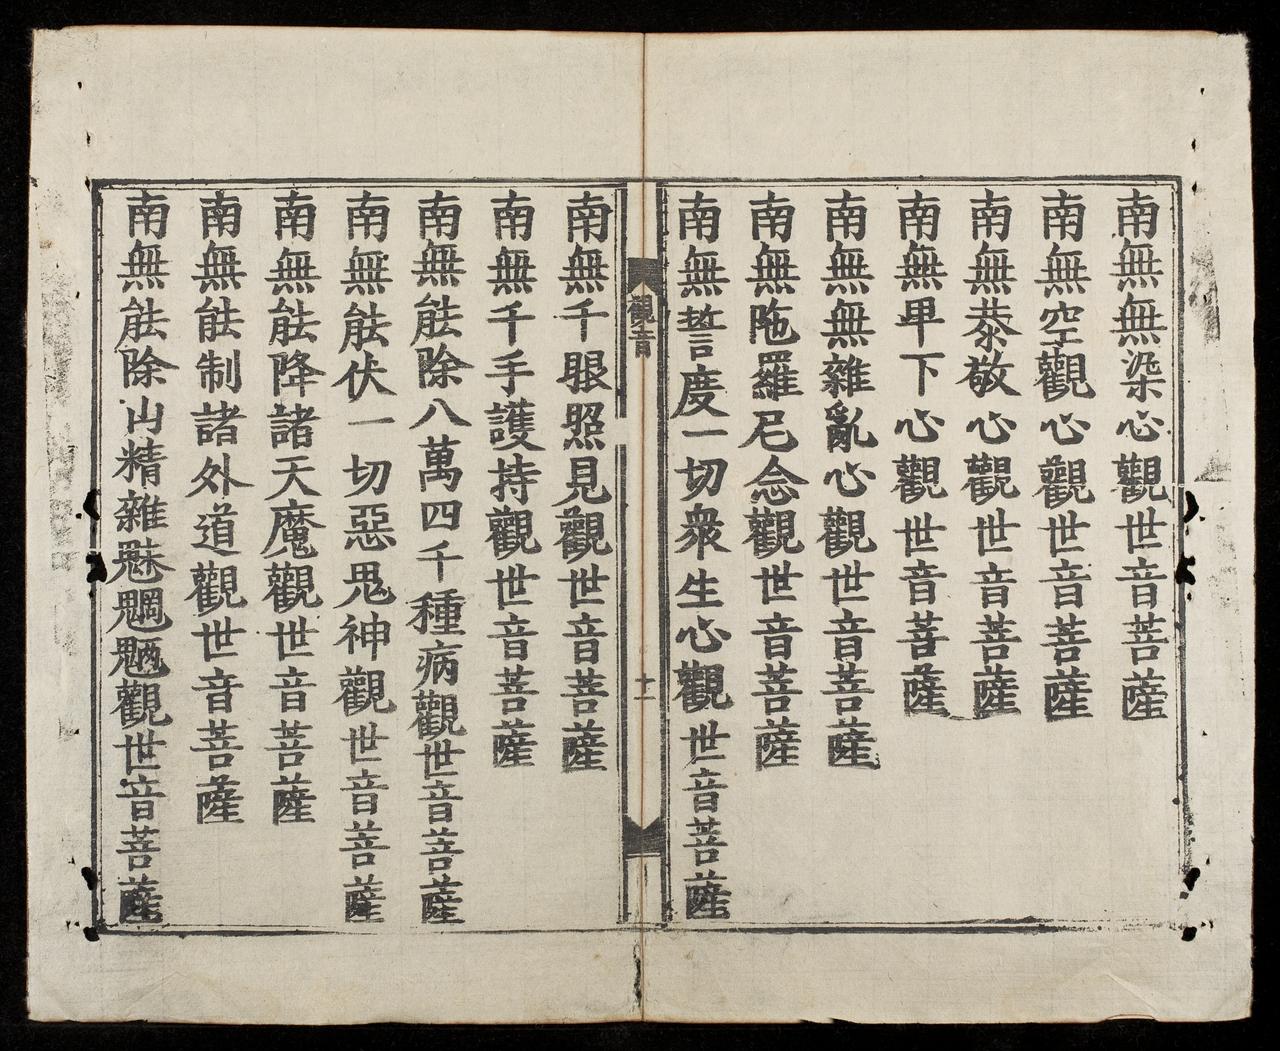 南無無染心觀世音菩薩
南無空觀心觀世音菩薩
南無恭敬心觀世音菩薩
南無卑下心觀世音菩薩
南無無雜亂心觀世音菩薩
南無陁羅尼念觀世音菩薩
南無誓度一切衆生心觀世音菩薩
觀音
十一
南無千眼照見觀世音菩薩
南無千手護持觀世音菩薩
南無能除八萬四千種病觀世音菩薩
南無能伏一切惡鬼神觀世音菩薩
南無能降諸天魔觀世音菩薩
南無能制諸外道觀世音菩薩
南無能除山精雜魅魍魎觀世音菩薩